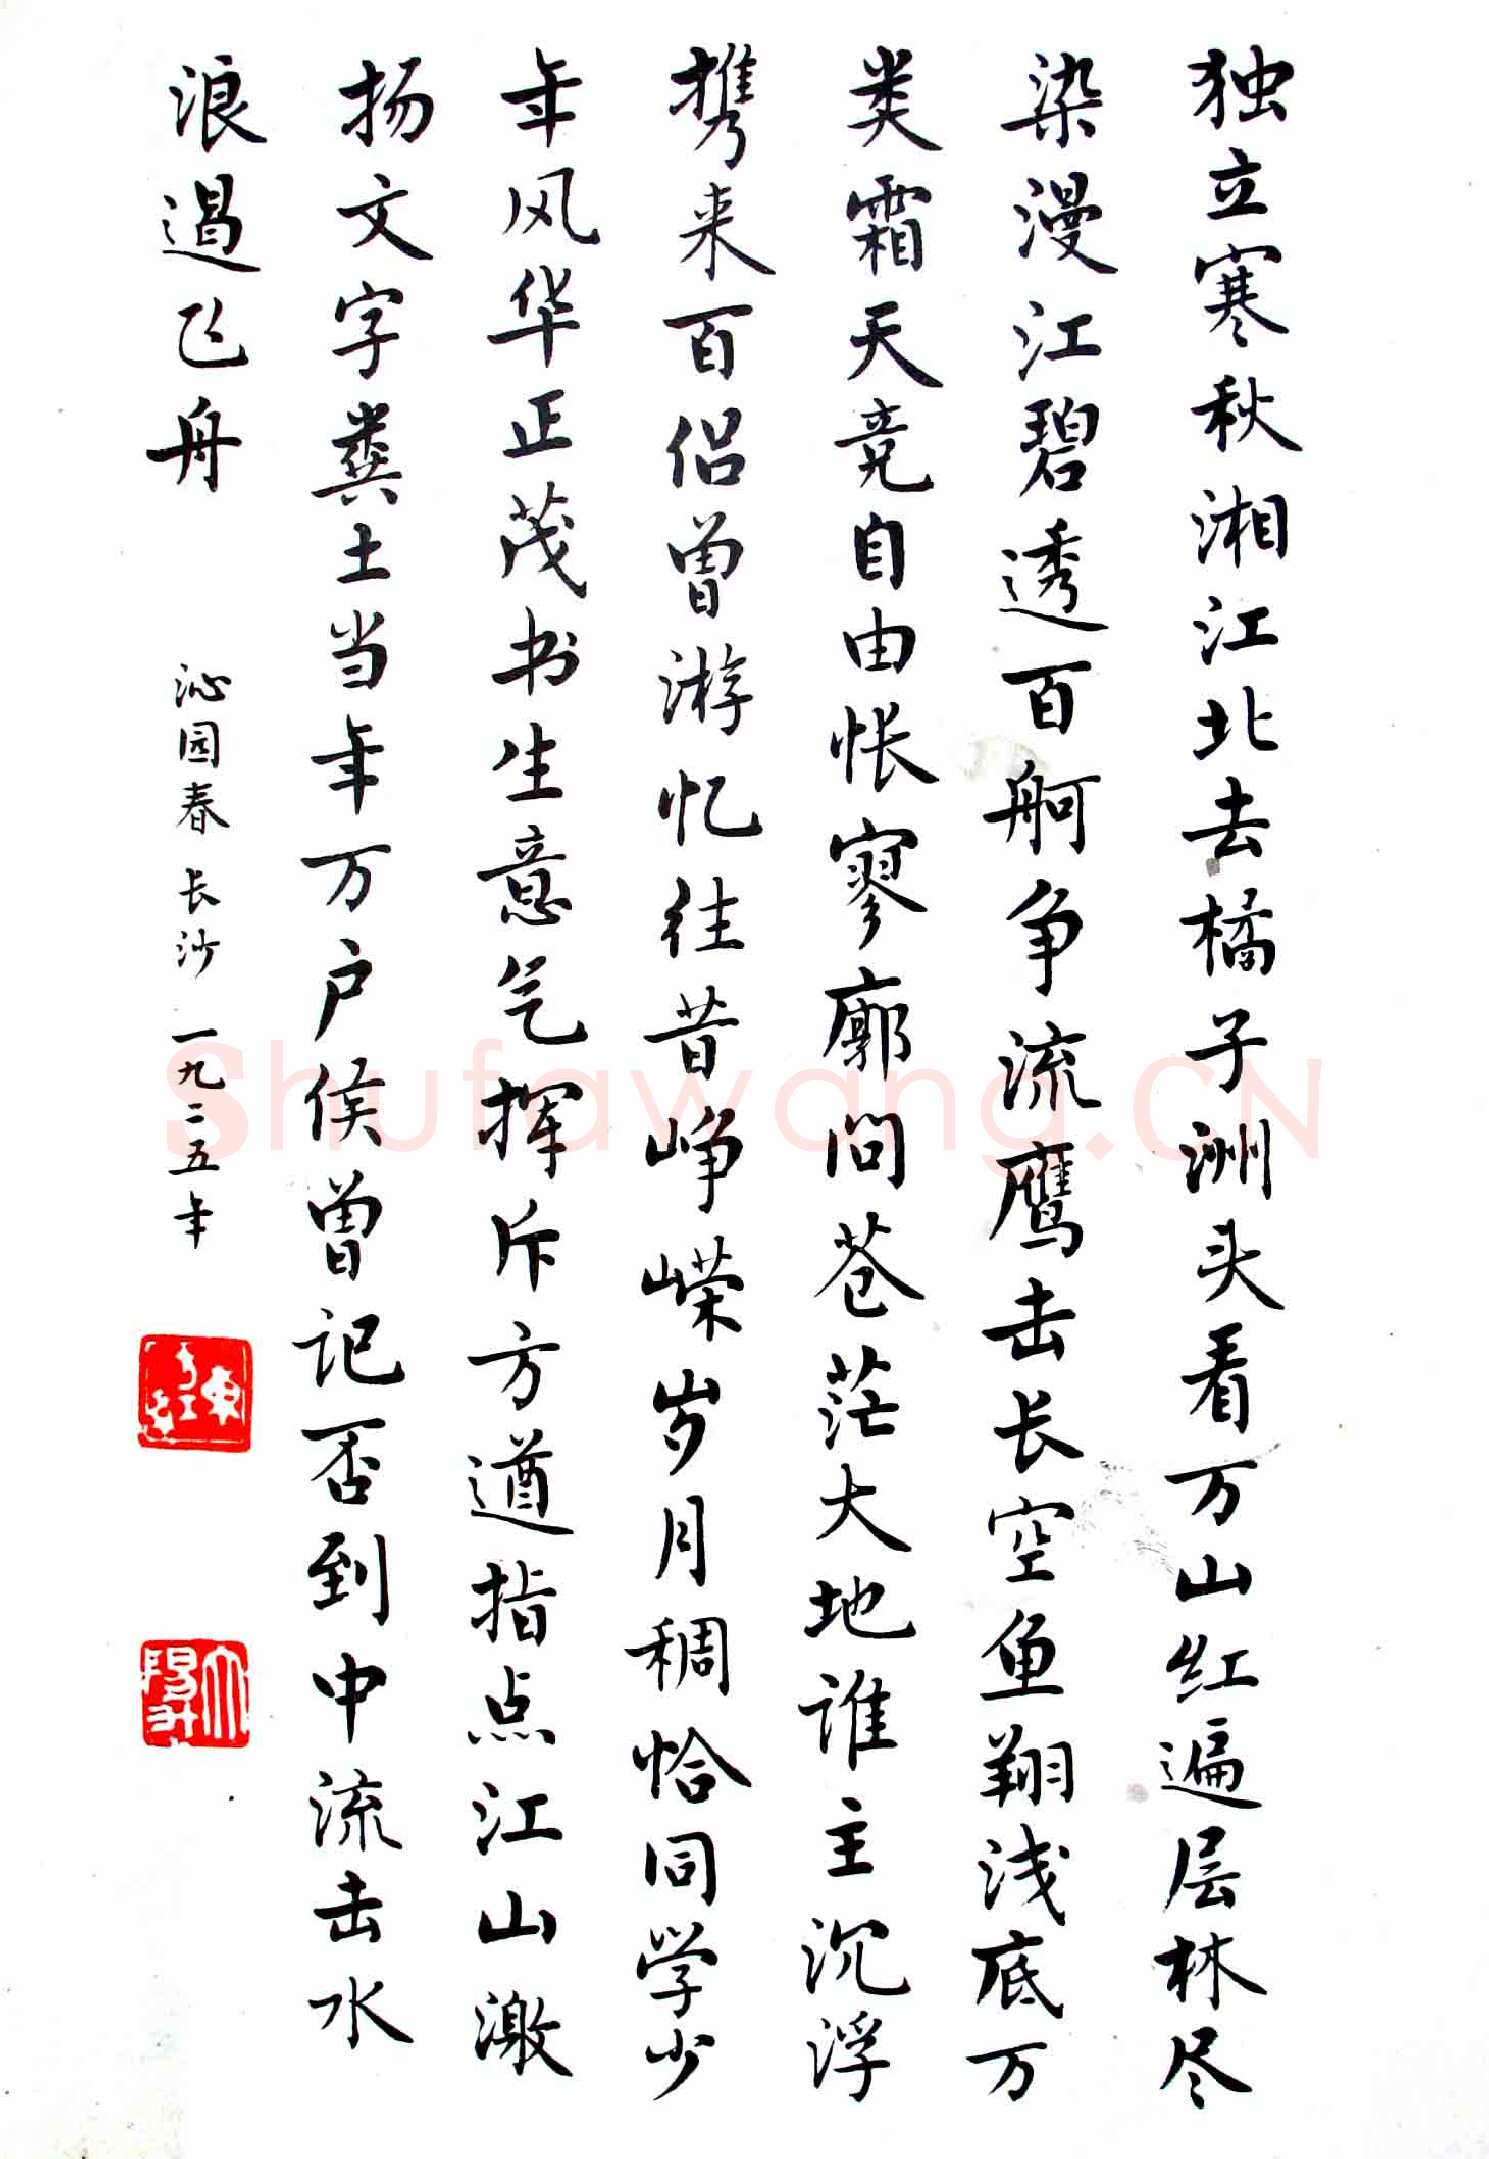 独立寒秋湘江北去橘子洲头看万山红遍层林尽
染漫江碧透百舸争流鹰击长空鱼翔浅底万
类霜天竞自由怅寥廓问苍茫大地谁主沉浮
携来百侣曾游忆往昔峥嵘岁月稠恰同学少
年风华正茂书生意气挥斥方遒指点江山激
扬文字粪土当年万户侯曾记否到中流击水
浪遏飞舟
沁园春 长沙 一九二五年
Shufawang.CN